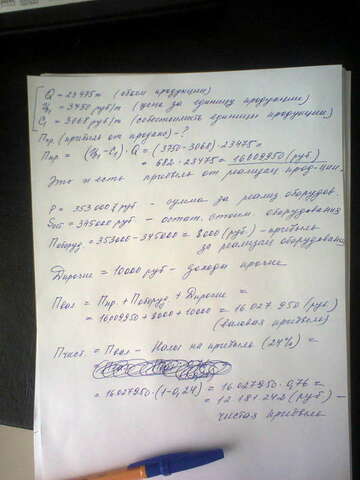 Q = 23475 т (объем продукции)
Ц₁ = 3750 руб/т (цена за единицу продукции)
С₁ = 3068 руб/т (себестоимость единицы продукции)
Ппр. (прибыль от продаж) - ?
Ппр = (Ц₁ - С₁) · Q = (3750 - 3068) · 23475 =
= 682 · 23475 = 16009950 (руб)
Это и есть прибыль от реализац. прод-ции.
P = 353000 руб - сумма за реализ оборудов.
Sост = 345000 руб - остат. стоим. оборудования
Поборуд = 353000 - 345000 = 8000 (руб) - прибыль
за реализац оборудования
Дпрочие = 10000 руб - доходы прочие
Пвал = Ппр. + Поборуд. + Дпрочие =
= 16009950 + 8000 + 10000 = 16 027 950 (руб)
(валовая прибыль)
Пчист. = Пвал - Налог на прибыль (24%) =
= 16027950 · (1-0,24) = 16027950 · 0,76 =
= 12 181 242 (руб) -
чистая прибыль